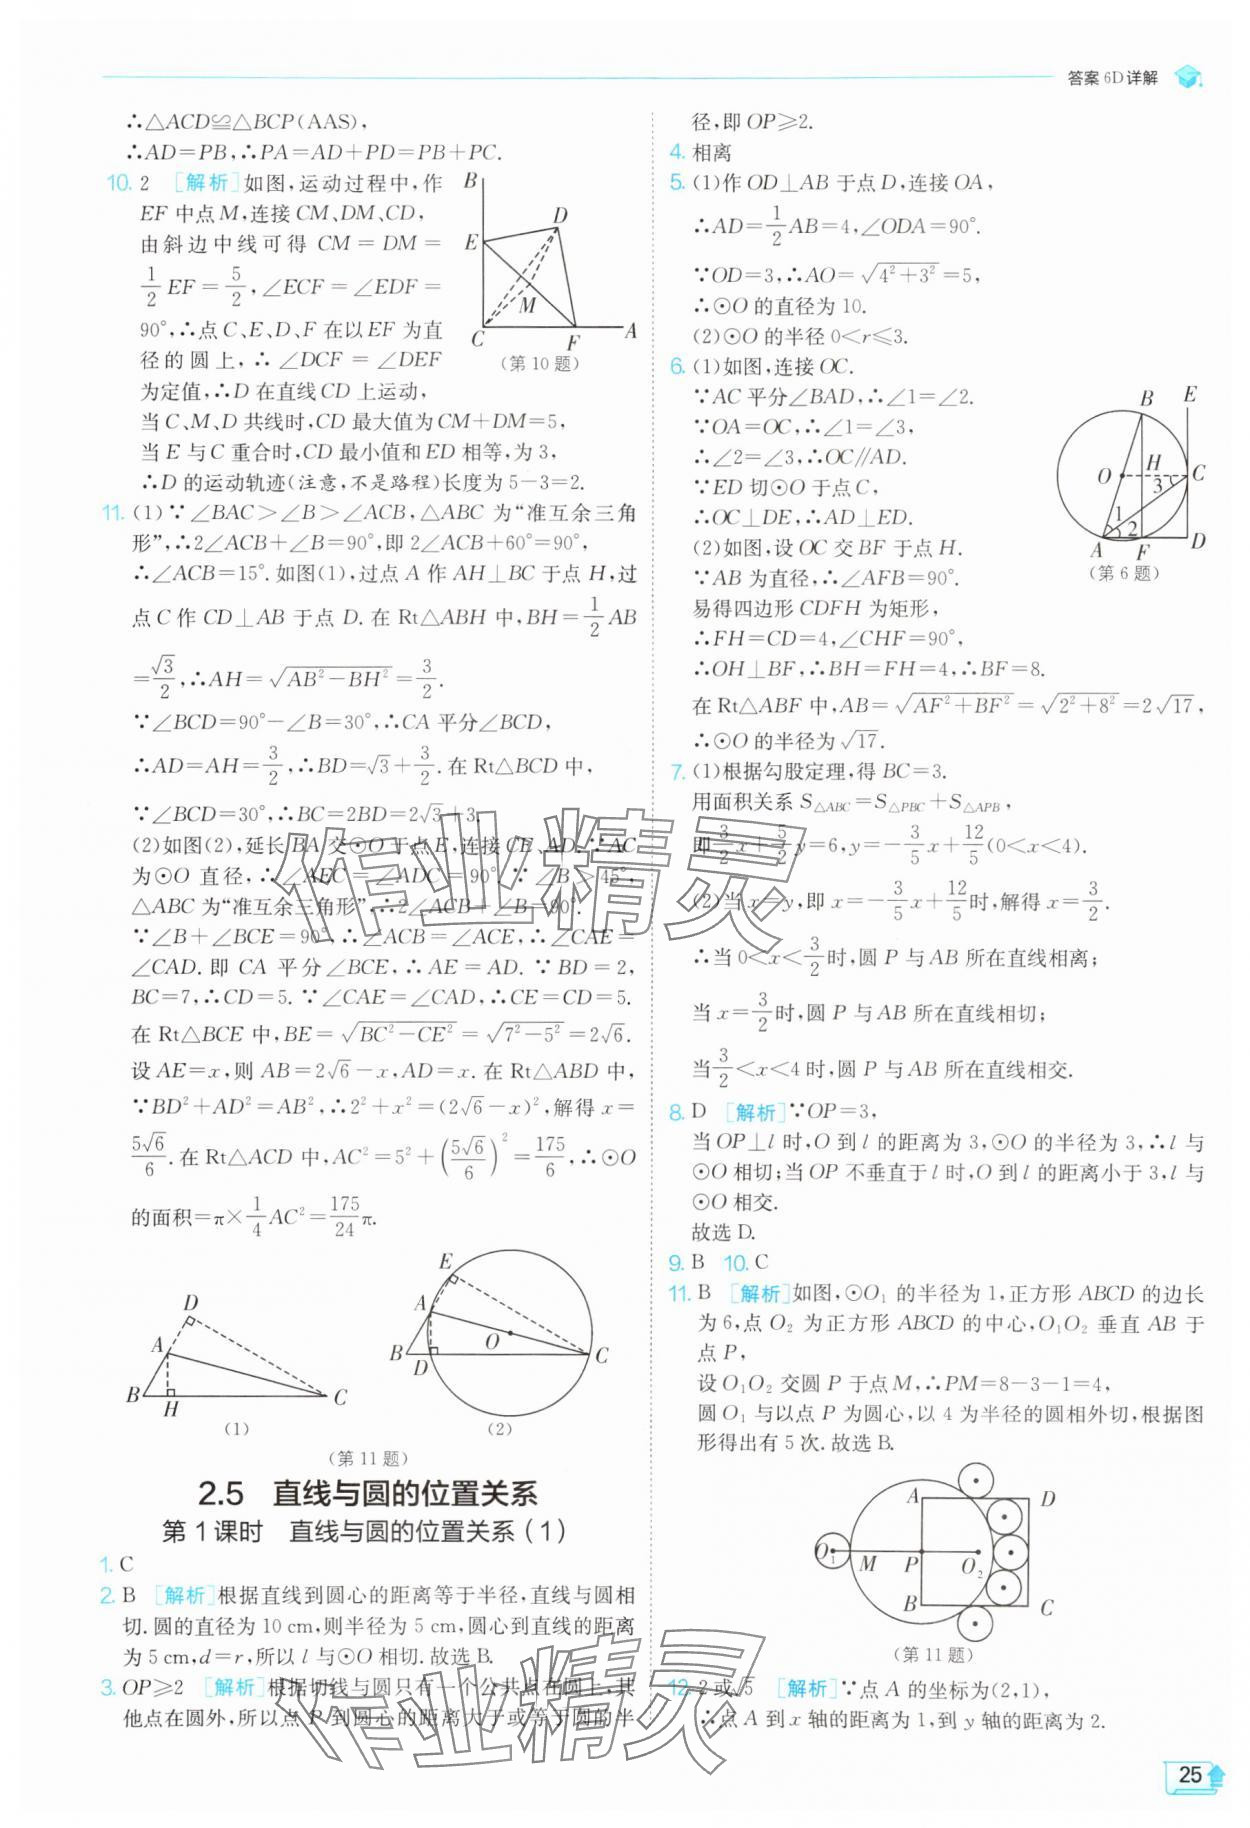 答案 6D 详解
∴△ACD≌△BCP(AAS),
∴AD=PB,∴PA=AD+PD=PB+PC.
10. 2 [解析]如图,运动过程中,作
EF 中点 M,连接 CM、DM、CD,
由斜边中线可得 CM = DM =
1/2 EF = 5/2, ∠ECF = ∠EDF =
90°,∴点 C、E、D、F 在以 EF 为直
径的圆上,∴ ∠DCF = ∠DEF
为定值,∴D 在直线 CD 上运动,
当 C、M、D 共线时,CD 最大值为 CM+DM=5,
当 E 与 C 重合时,CD 最小值和 ED 相等,为 3,
∴D 的运动轨迹(注意,不是路程)长度为 5-3=2.
B
D
E
M
C
F
A
(第 10 题)
11. (1)∵∠BAC>∠B>∠ACB,△ABC 为“准互余三角
形”,∴2∠ACB+∠B=90°,即 2∠ACB+60°=90°,
∴∠ACB=15°.如图(1),过点 A 作 AH⊥BC 于点 H,过
点 C 作 CD⊥AB 于点 D.在 Rt△ABH 中,BH=1/2 AB
=√3/2,∴AH=√(AB²-BH²)=3/2.
∵∠BCD=90°-∠B=30°,∴CA 平分∠BCD,
∴AD=AH=3/2,∴BD=√3+3/2.在 Rt△BCD 中,
∵∠BCD=30°,∴BC=2BD=2√3+3.
(2)如图(2),延长 BA 交⊙O 于点 E,连接 CE、AD.∵AC
为⊙O 直径,∴∠AEC=∠ADC=90°.∵∠B>45°,
△ABC 为“准互余三角形”,∴2∠ACB+∠B=90°.
∵∠B+∠BCE=90°,∴∠ACB=∠ACE,∴∠CAE=
∠CAD.即 CA 平分∠BCE,∴AE=AD.∵BD=2,
BC=7,∴CD=5.∵∠CAE=∠CAD,∴CE=CD=5.
在 Rt△BCE 中,BE=√(BC²-CE²)=√(7²-5²)=2√6.
设 AE=x,则 AB=2√6-x,AD=x.在 Rt△ABD 中,
∵BD²+AD²=AB²,∴2²+x²=(2√6-x)²,解得 x=
5√6/6.在 Rt△ACD 中,AC²=5²+(5√6/6)²=175/6,∴⊙O
的面积=π×1/4 AC²=175/24 π.
D
A
B
H
C
(1)
E
A
O
B
D
C
(2)
(第 11 题)
2.5 直线与圆的位置关系
第 1 课时 直线与圆的位置关系(1)
1. C
2. B [解析]根据直线到圆心的距离等于半径,直线与圆相
切.圆的直径为 10 cm,则半径为 5 cm,圆心到直线的距离
为 5 cm,d=r,所以 l 与⊙O 相切.故选 B.
3. OP≥2 [解析]根据切线与圆只有一个公共点在圆上,其
他点在圆外,所以点 P 到圆心的距离大于或等于圆的半
径,即 OP≥2.
4. 相离
5. (1)作 OD⊥AB 于点 D,连接 OA,
∴AD=1/2 AB=4,∠ODA=90°.
∵OD=3,∴AO=√(4²+3²)=5,
∴⊙O 的直径为 10.
(2)⊙O 的半径 0<r≤3.
6. (1)如图,连接 OC.
∵AC 平分∠BAD,∴∠1=∠2.
∵OA=OC,∴∠1=∠3,
∴∠2=∠3,∴OC∥AD.
∵ED 切⊙O 于点 C,
∴OC⊥DE,∴AD⊥ED.
(2)如图,设 OC 交 BF 于点 H.
∵AB 为直径,∴∠AFB=90°.
易得四边形 CDFH 为矩形,
∴FH=CD=4,∠CHF=90°,
∴OH⊥BF,∴BH=FH=4,∴BF=8.
在 Rt△ABF 中,AB=√(AF²+BF²)=√(2²+8²)=2√17,
∴⊙O 的半径为√17.
B
E
O
H
C
3
1
2
A
F
D
(第 6 题)
7. (1)根据勾股定理,得 BC=3.
用面积关系 S△ABC=S△PBC+S△APB,
即 3/2 x+5/2 y=6,y=-3/5 x+12/5(0<x<4).
(2)当 x=y,即 x=-3/5 x+12/5时,解得 x=3/2.
∴当 0<x<3/2时,圆 P 与 AB 所在直线相离;
当 x=3/2时,圆 P 与 AB 所在直线相切;
当3/2<x<4 时,圆 P 与 AB 所在直线相交.
8. D [解析]∵OP=3,
当 OP⊥l 时,O 到 l 的距离为 3,⊙O 的半径为 3,∴l 与
⊙O 相切;当 OP 不垂直于 l 时,O 到 l 的距离小于 3,l 与
⊙O 相交.
故选 D.
9. B 10. C
11. B [解析]如图,⊙O₁ 的半径为 1,正方形 ABCD 的边长
为 6,点 O₂ 为正方形 ABCD 的中心,O₁O₂ 垂直 AB 于
点 P,
设 O₁O₂ 交圆 P 于点 M,∴PM=8-3-1=4,
圆 O₁ 与以点 P 为圆心,以 4 为半径的圆相外切,根据图
形得出有 5 次.故选 B.
A
D
O₁
M
P
O₂
B
C
(第 11 题)
12. 2 或√5 [解析]∵点 A 的坐标为(2,1),
∴点 A 到 x 轴的距离为 1,到 y 轴的距离为 2.
作业精灵
作业精灵
25